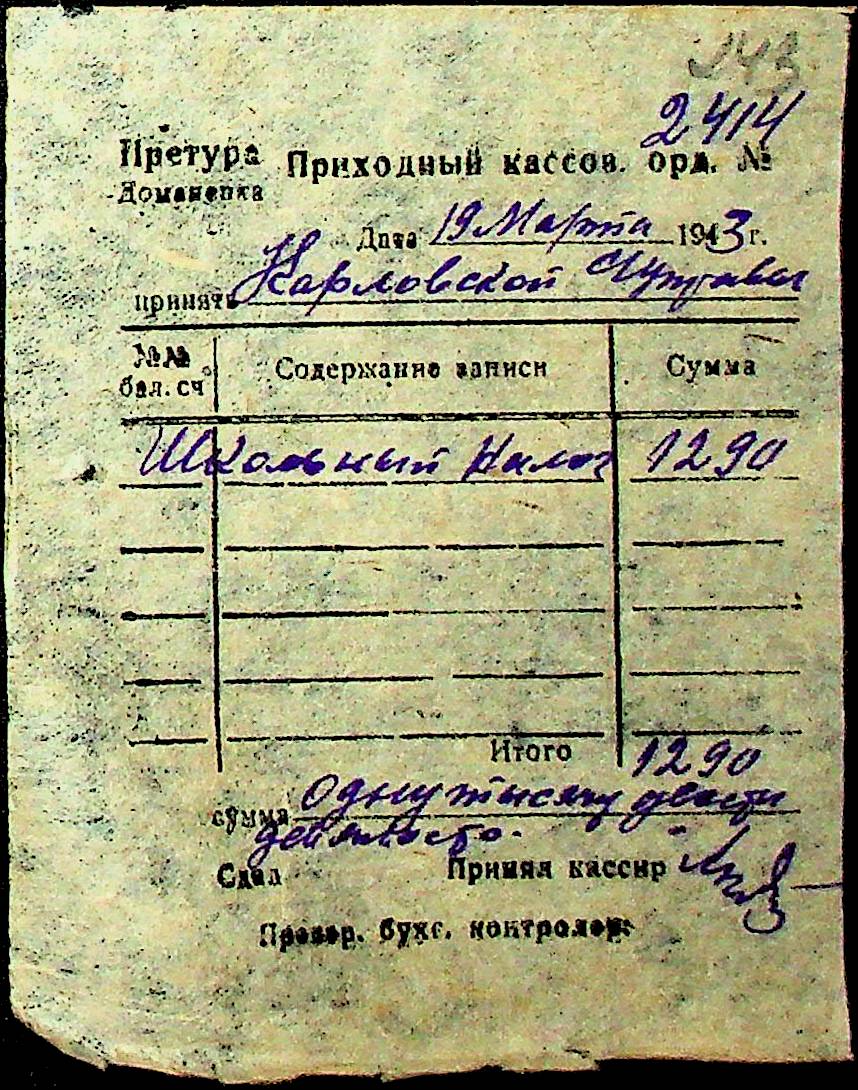 143
2414
Претура Приходный кассов. орд. №
Доманевка
Дата 19 Марта 1943 г.
принять Карловской
№№ бал. сч Содержание записи Сумма
Школьный налог 1290
Итого 1290
сумма Одну тысячу двести
девяносто.
Сдал Принял кассир
Провер. бухг. контролер: